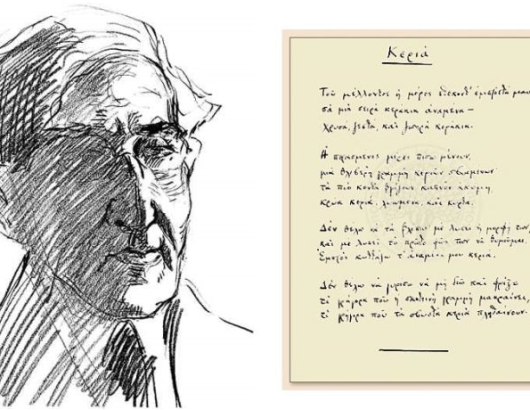 Κεριά
Του μέλλοντος η μέρες στέκοντ' εμπροστά μας
σα μια σειρά κεράκια αναμένα —
χρυσά, ζεστά, και ζωηρά κεράκια.
Η περασμένες μέρες πίσω μένουν,
μια θλιβερή γραμμή κεριών σβυσμένων·
τα πιο κοντά βγάζουν καπνόν ακόμη,
κρύα κεριά, λυωμένα, και κυρτά.
Δεν θέλω να τα βλέπω· με λυπεί η μορφή των,
και με λυπεί το πρώτο φως των να θυμούμαι.
Εμπρός κυττάζω τ' αναμένα μου κεριά.
Δεν θέλω να γυρίσω να μη διω και φρίξω
τι γρήγορα που η σκοτεινή γραμμή μακραίνει,
τι γρήγορα που τα σβυστά κεριά πληθαίνουν.